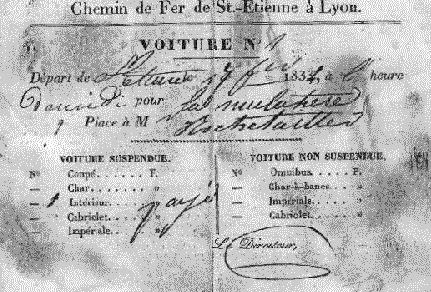 Chemin de Fer de St.-Etienne à Lyon.
VOITURE N° 1
Départ de St Etienne 27 fév 183 à heure
pour La mulatière
1 Place à M
VOITURE SUSPENDUE.
N° Coupé...... F.
— Char....... »
1 Intérieur.... »
— Cabriolet.... »
— Impériale... »
payé
VOITURE NON SUSPENDUE.
N° Omnibus.... F.
— Char-à-bancs... »
— Impériale.... »
— Cabriolet.... »
Le Directeur,